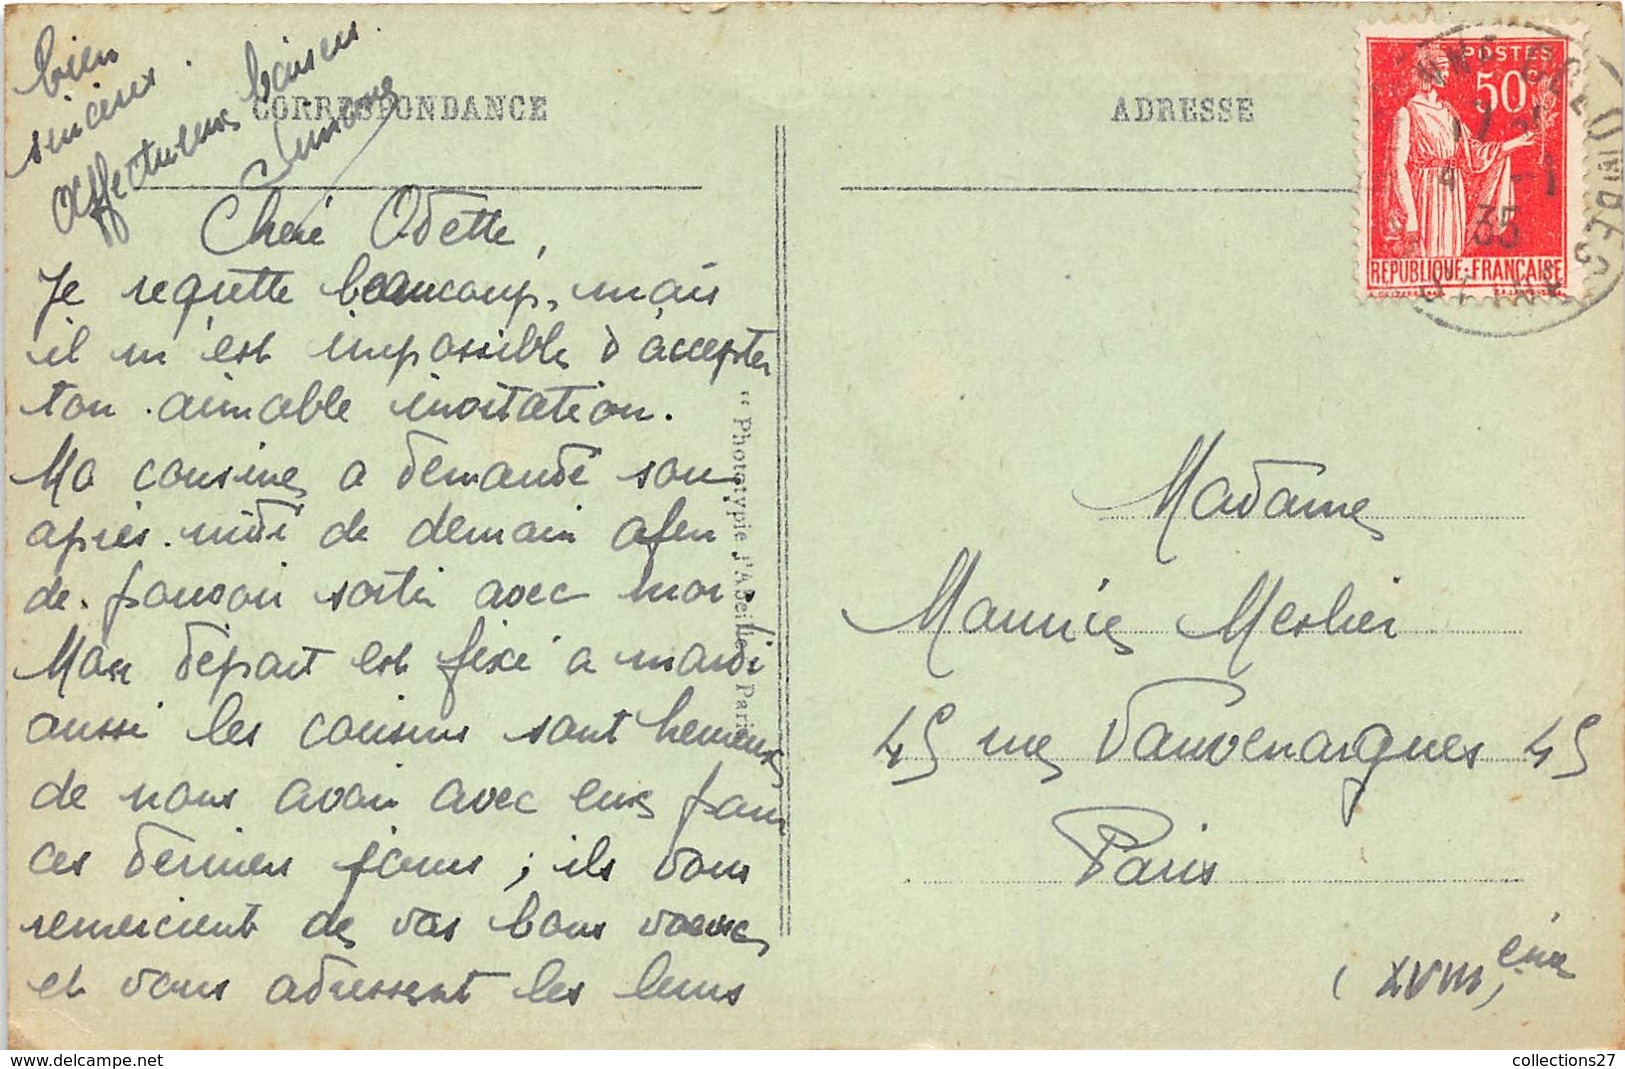 CORRESPONDANCE
Chère Odette,
Je regrette beaucoup, mais
il m'est impossible d'accepter
ton aimable invitation.
Ma cousine a demandé son
après-midi de demain afin
de pouvoir sortir avec moi.
Mon départ est fixé à mardi
aussi les cousins sont heureux
de nous avoir avec eux pour
ces derniers jours ; ils vous
remercient de vos bons voeux
et vous adressent les leurs
bien
sincères.
Affectueux baisers.
Simone
"Phototypie J'Abeille" Paris
ADRESSE
POSTES
50c
17
4 -1
35
REPUBLIQUE-FRANÇAISE
Madame
Maurice Merlier
45 rue Vauvenargues 45
Paris
(XVIII,ème
collections27